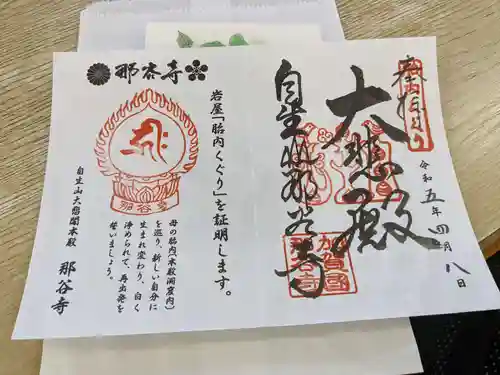 奉拝
大悲殿
自生山那谷寺
加賀國
那谷寺
令和五年四月八日
那谷寺
岩屋「胎内くぐり」を証明します。
母の胎内(本殿洞窟内)
を巡り、新しい自分に
生まれ変わり、白く
浄められて、再出発を
誓いましょう。
自生山大悲閣本殿 那谷寺
那谷寺